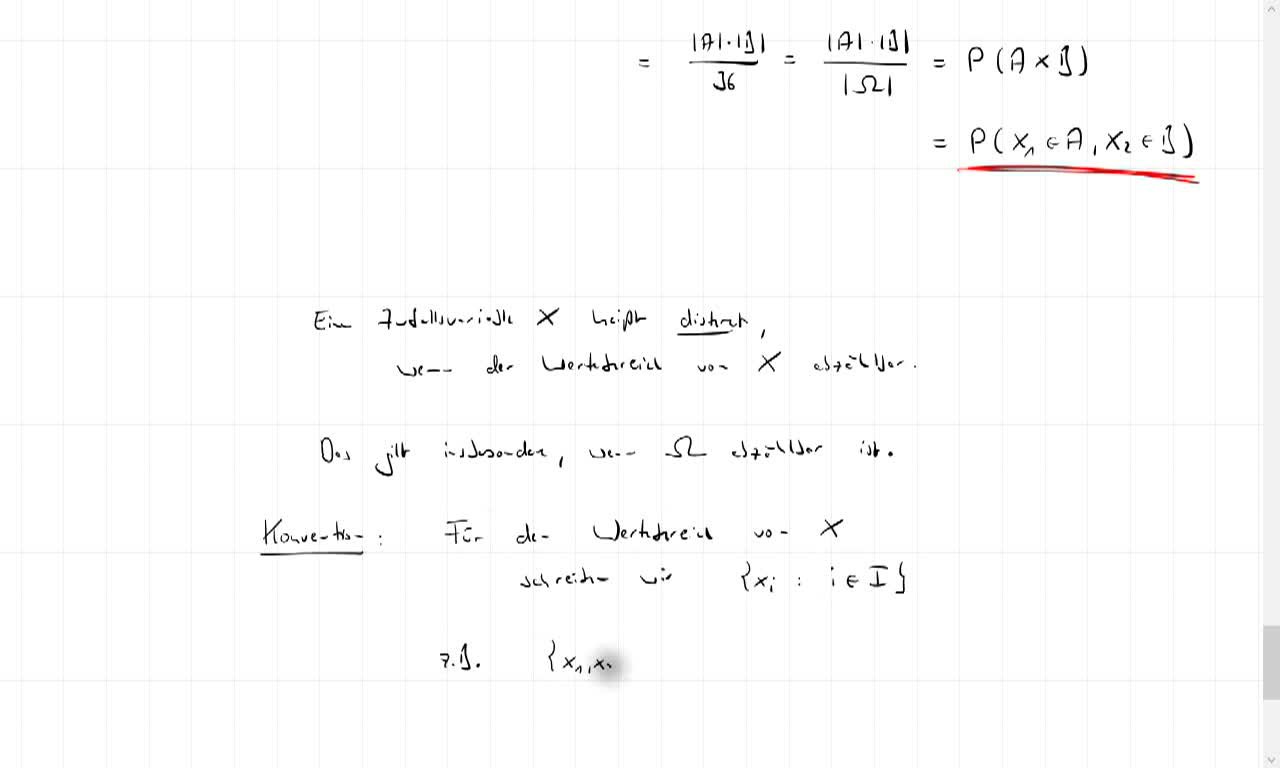 = |A|·|B| / 36 = |A|·|B| / |Ω| = P(A × B)
= P(X₁ ∈ A, X₂ ∈ B)
Eine Zufallsvariable X heißt diskret,
wenn der Wertebereich von X abzählbar.
Das gilt insbesondere, wenn Ω abzählbar ist.
Konvention: Für den Wertebereich von X
schreiben wir {xᵢ : i ∈ I}
z.B. {x₁, x